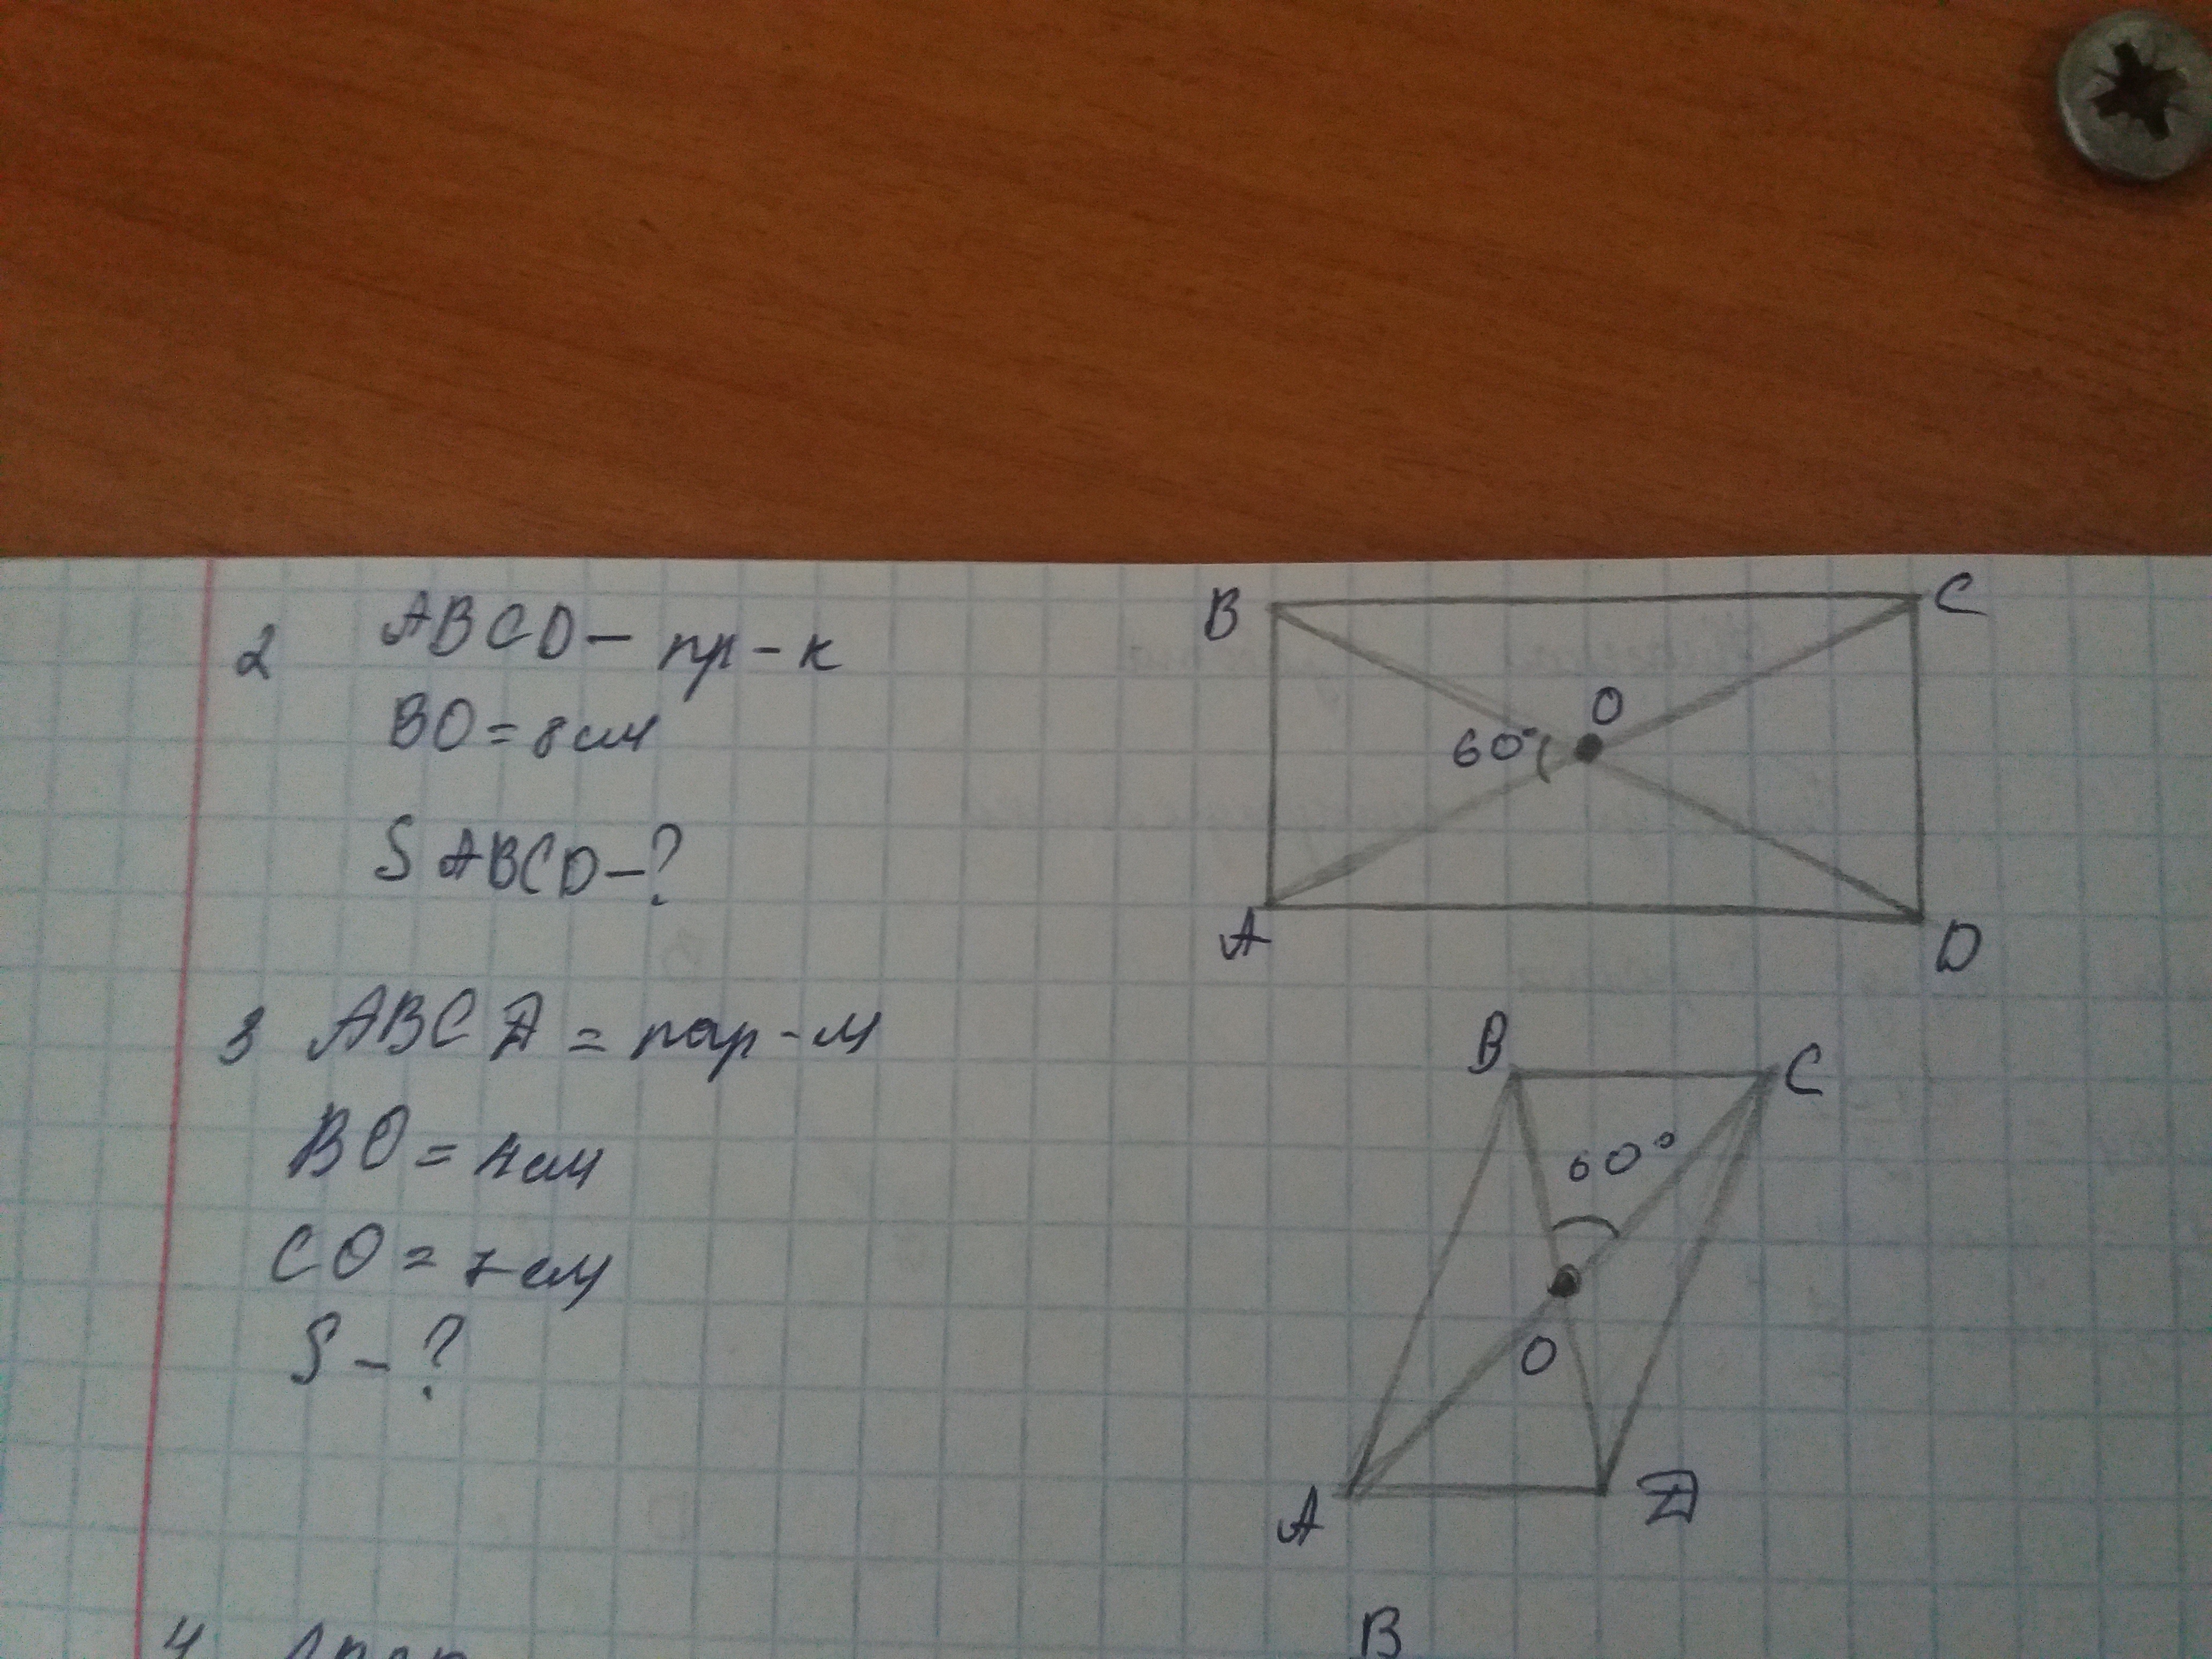 2 ABCD – пр-к
BO = 8 см
S ABCD – ?
B
C
O
60°
A
D
3 ABCД = пар-м
BO = 4 см
CO = 7 см
S – ?
B
C
60°
O
A
Д
4
B